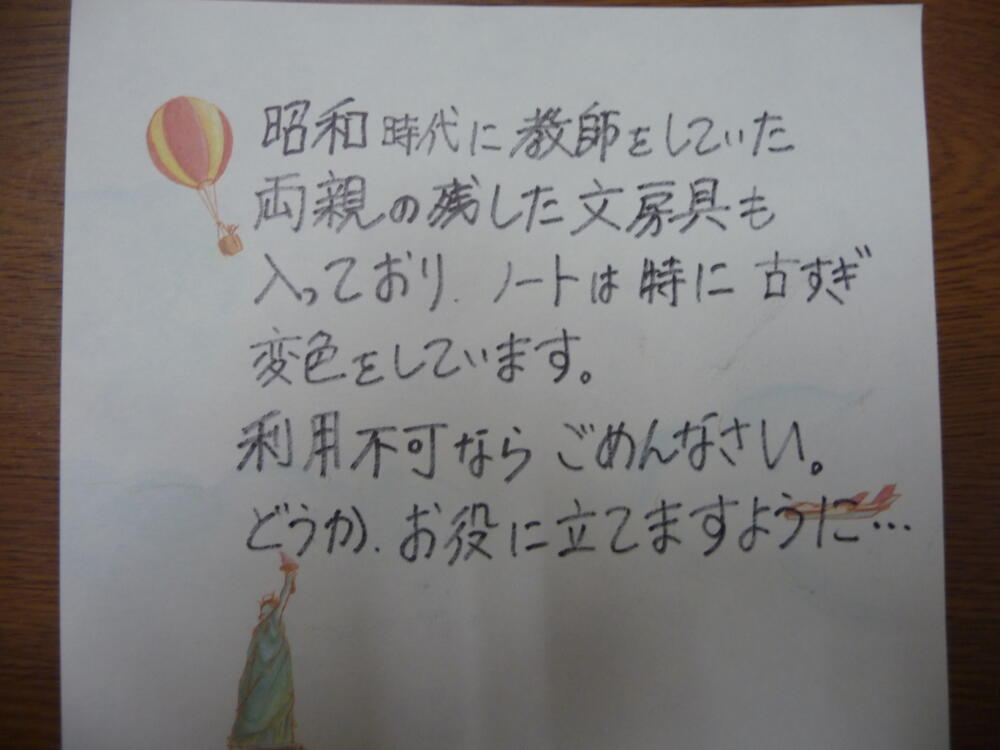 昭和時代に教師をしていた
両親の残した文房具も
入っており、ノートは特に古すぎ
変色をしています。
利用不可ならごめんなさい。
どうか、お役に立てますように…